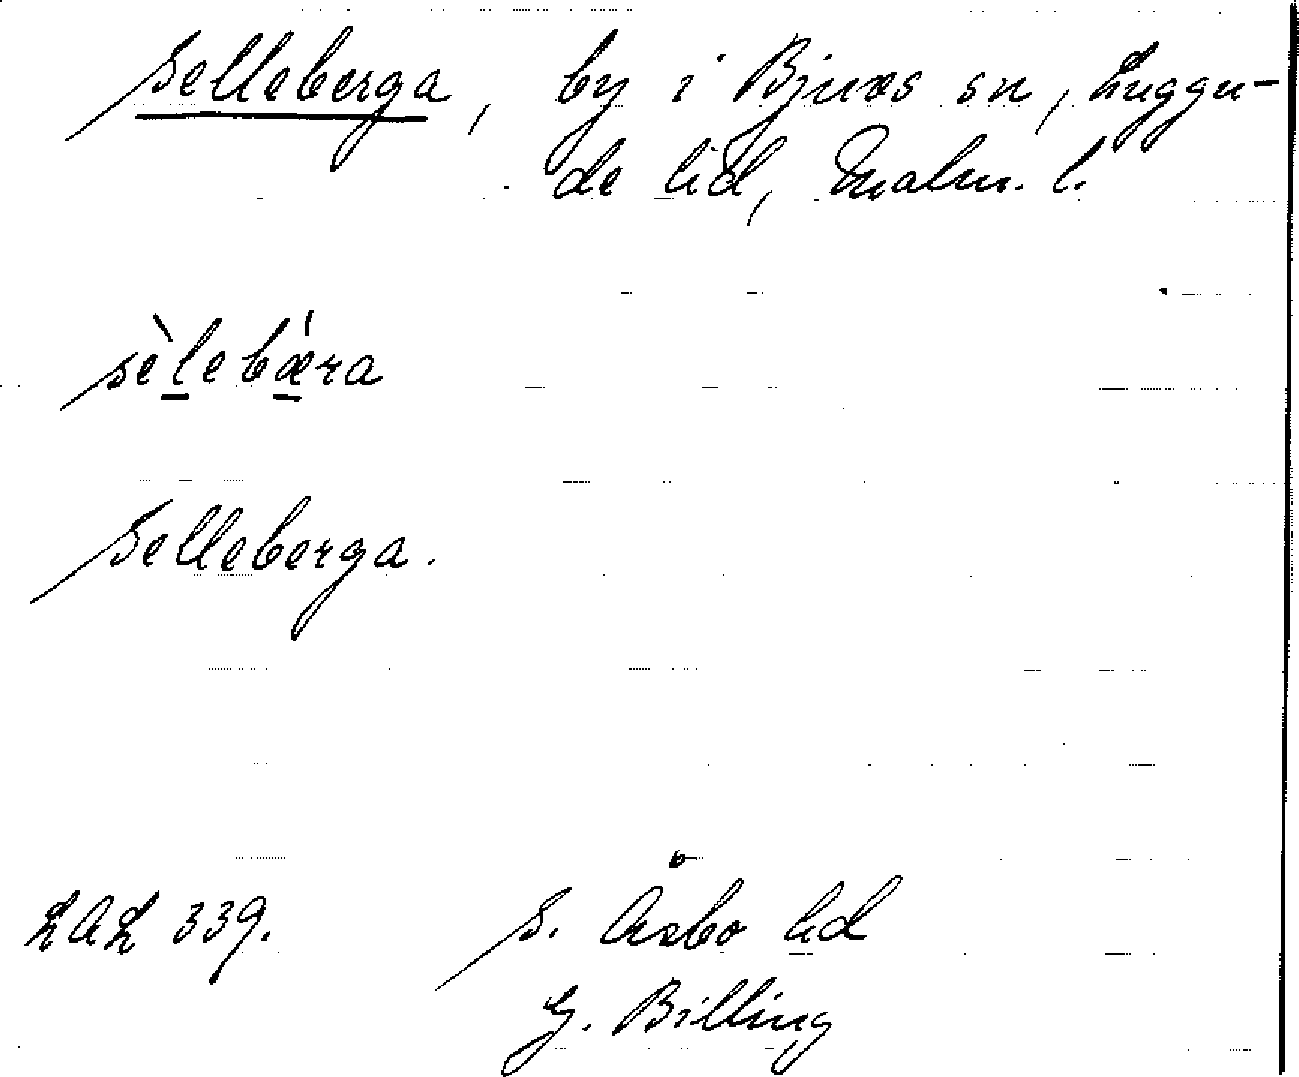 Selleberga, by i Bjuvs sn, Luggu-
de hd, Malm. l.
sèlebǽra
Selleberga.
LAL 339.
S. Åsbo hd
G. Billing